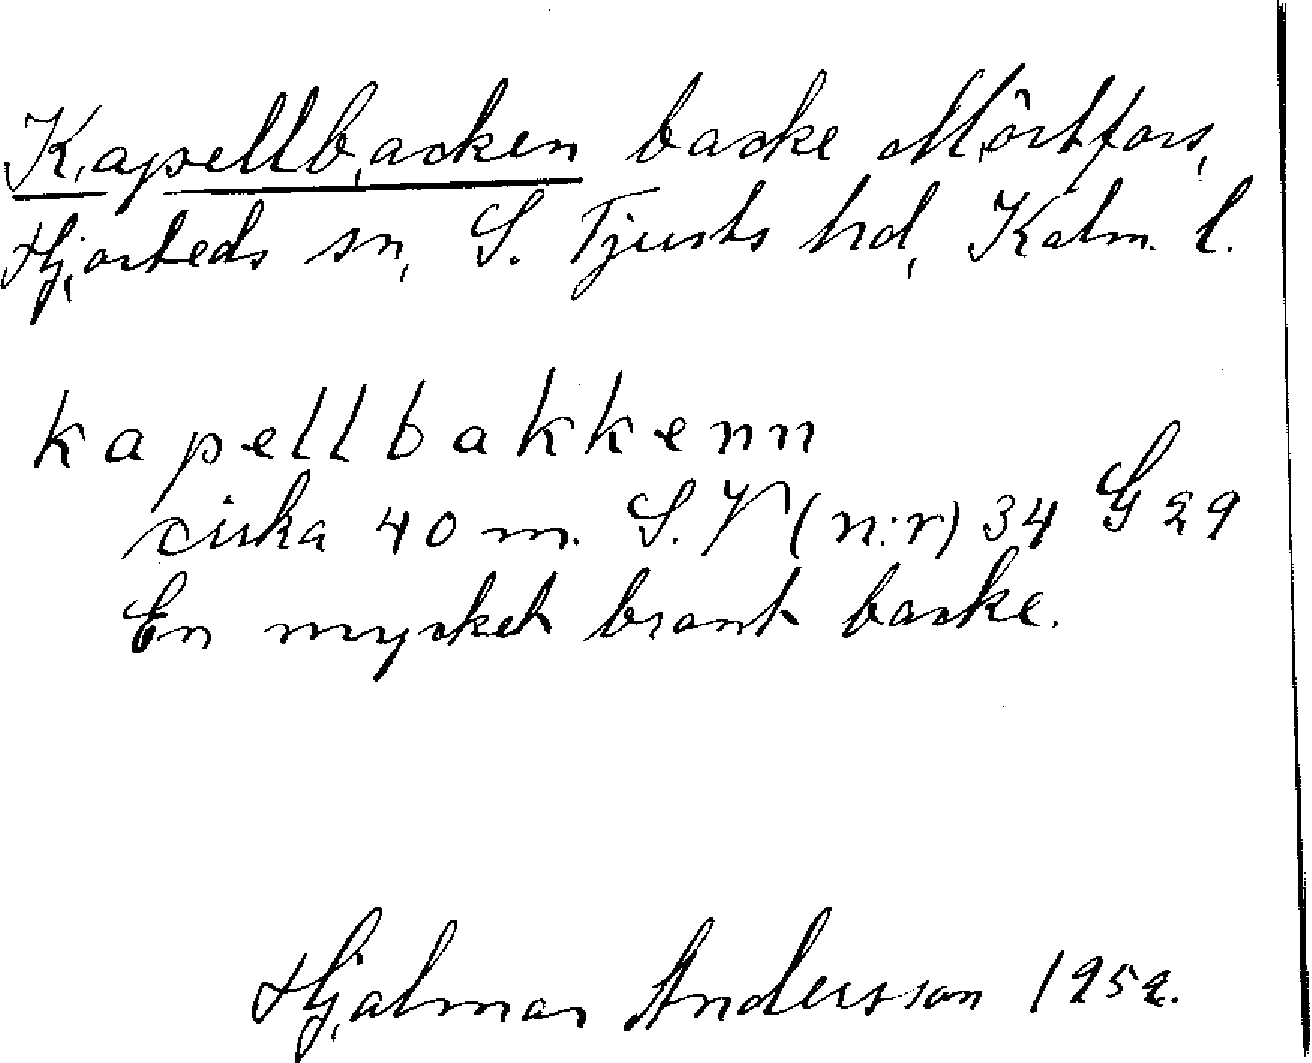 Kapellbacken backe Mörtfors,
Hjorteds sn, S. Tjusts hd, Kalm. l.
kapellbakkenn
cirka 40 m. S.V (n:r) 34 G 29
En mycket brant backe.
Hjalmar Andersson 1952.